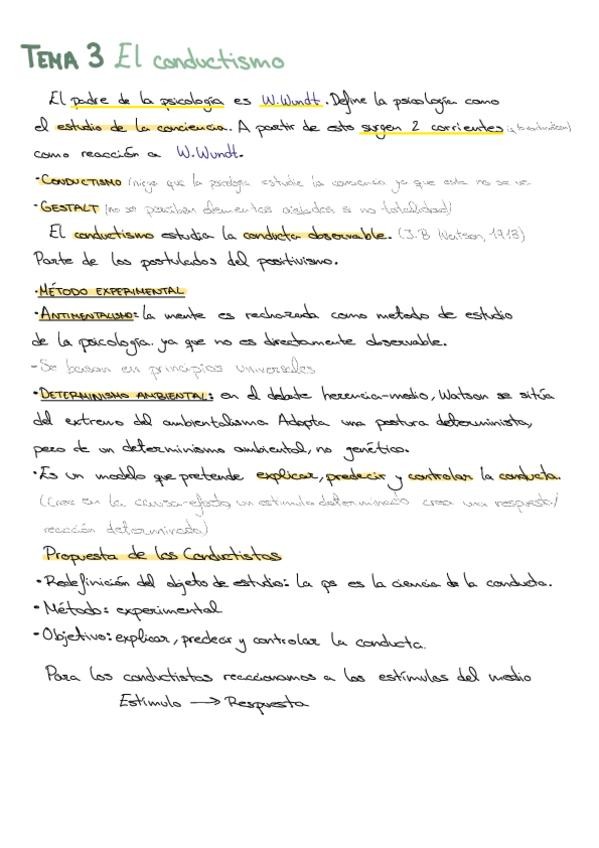 TEMA 3 El conductismo
El padre de la psicología es W.Wundt. Define la psicología como
el estudio de la conciencia. A partir de esto surgen 2 corrientes
como reacción a W.Wundt.
·CONDUCTISMO (niega que la psicología estudie la consciencia ya que esta no se ve
·GESTALT (no se perciben elementos aislados si no totalidad)
El conductismo estudia la conducta observable. (J.B Watson, 1913)
Parte de los postulados del positivismo.
·MÉTODO EXPERIMENTAL
·ANTIMENTALISMO: La mente es rechazada como metodo de estudio
de la psicología. ya que no es directamente observable.
-Se basan en principios universales
·DETERMINISMO AMBIENTAL: en el debate herencia-medio, Watson se sitúa
del extremo del ambientalismo Adopta una postura determinista,
pero de un determinismo ambiental, no genético.
·Es un modelo que pretende explicar, predecir y controlar la conducta.
(Cree en la causa-efecto, un estimulo determinado crea una respuesta/
reacción determinada)
Propuesta de los Conductistas
·Redefinición del objeto de estudio: La ps es la ciencia de la conducta.
·Método: experimental
·Objetivo: explicar, predecir y controlar la conducta.
Para los conductistas reaccionamos a los estímulos del medio
Estímulo → Respuesta